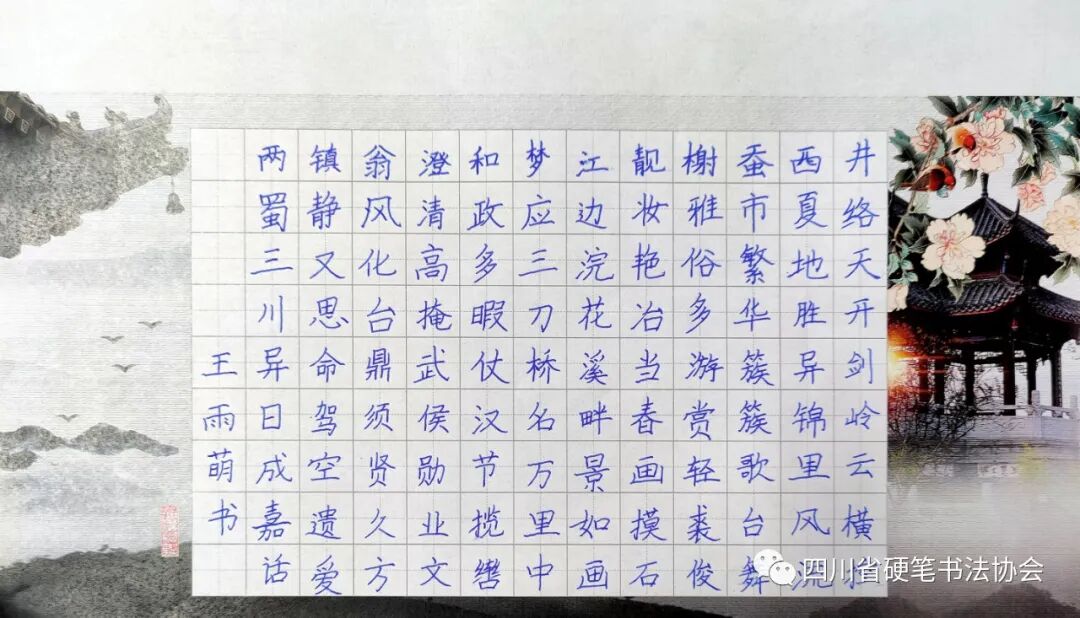 井络天开剑岭云横
西夏地胜异锦里风流
蚕市繁华簇簇歌台舞
榭雅俗多游赏轻裘俊
靓妆艳冶当春画摸石
江边浣花溪畔景如画
梦应三刀桥名万里中
和政多暇仗汉节揽辔
澄清高掩武侯勋业文
翁风化台鼎须贤久方
镇静又思命驾空遗爱
两蜀三川异日成嘉话
王雨萌书
四川省硬笔书法协会